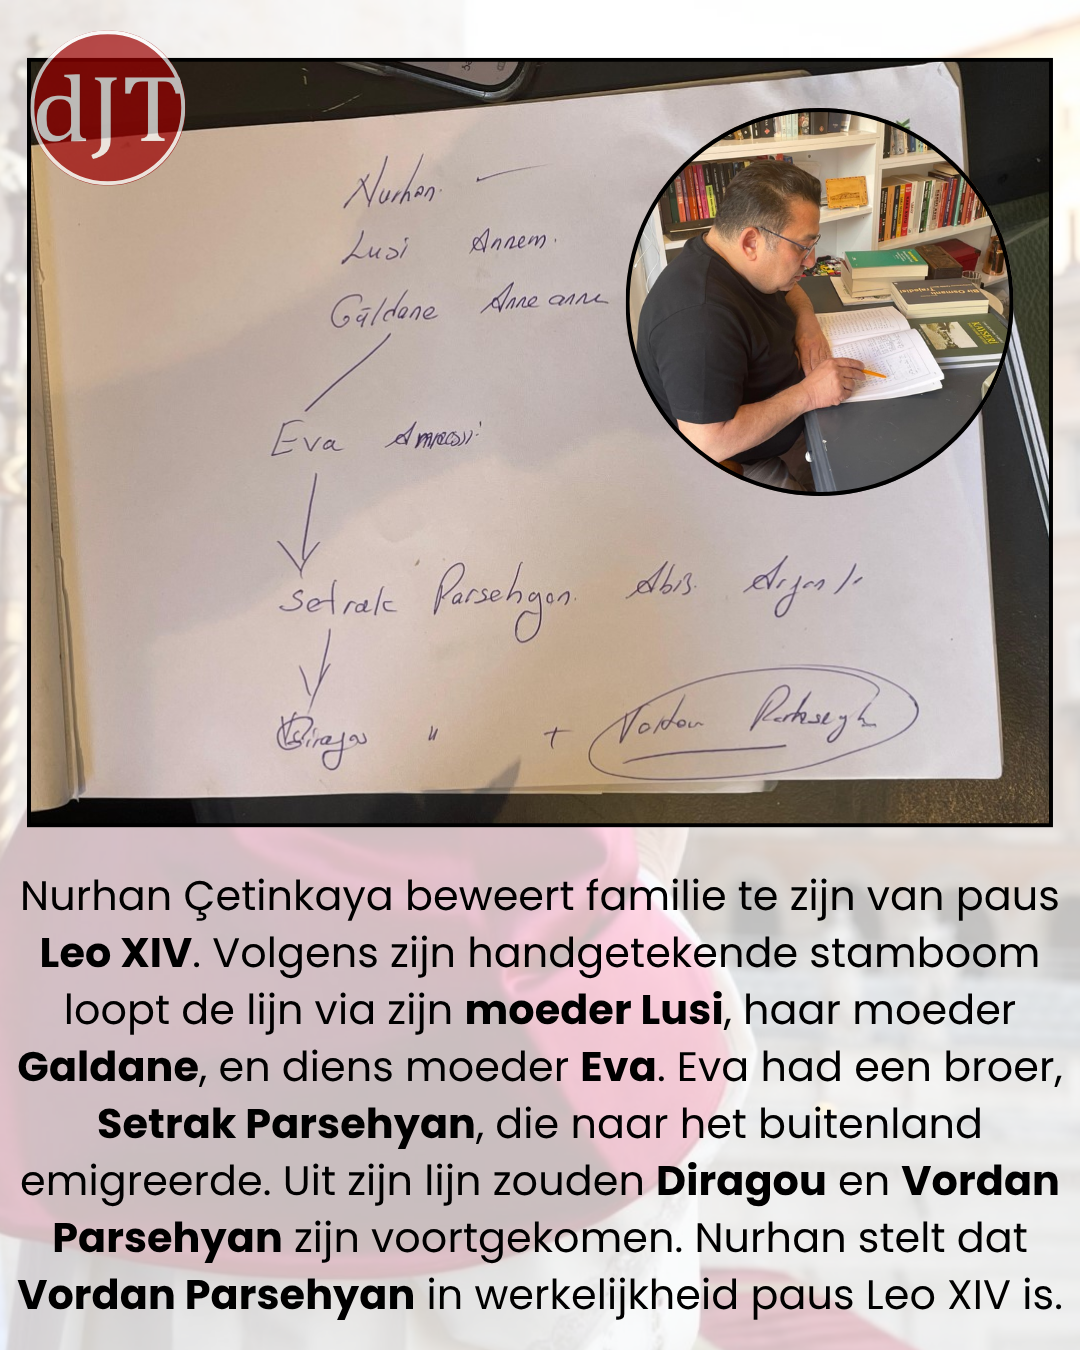 dJT
Nurhan.
Lusi Annem.
Galdane Anneanne
Eva
Setrak Parsehyan. Abisi
"
+ Vordan
Bir Osmanlı
KAYSERİ
Nurhan Çetinkaya beweert familie te zijn van paus
Leo XIV. Volgens zijn handgetekende stamboom
loopt de lijn via zijn moeder Lusi, haar moeder
Galdane, en diens moeder Eva. Eva had een broer,
Setrak Parsehyan, die naar het buitenland
emigreerde. Uit zijn lijn zouden Diragou en Vordan
Parsehyan zijn voortgekomen. Nurhan stelt dat
Vordan Parsehyan in werkelijkheid paus Leo XIV is.